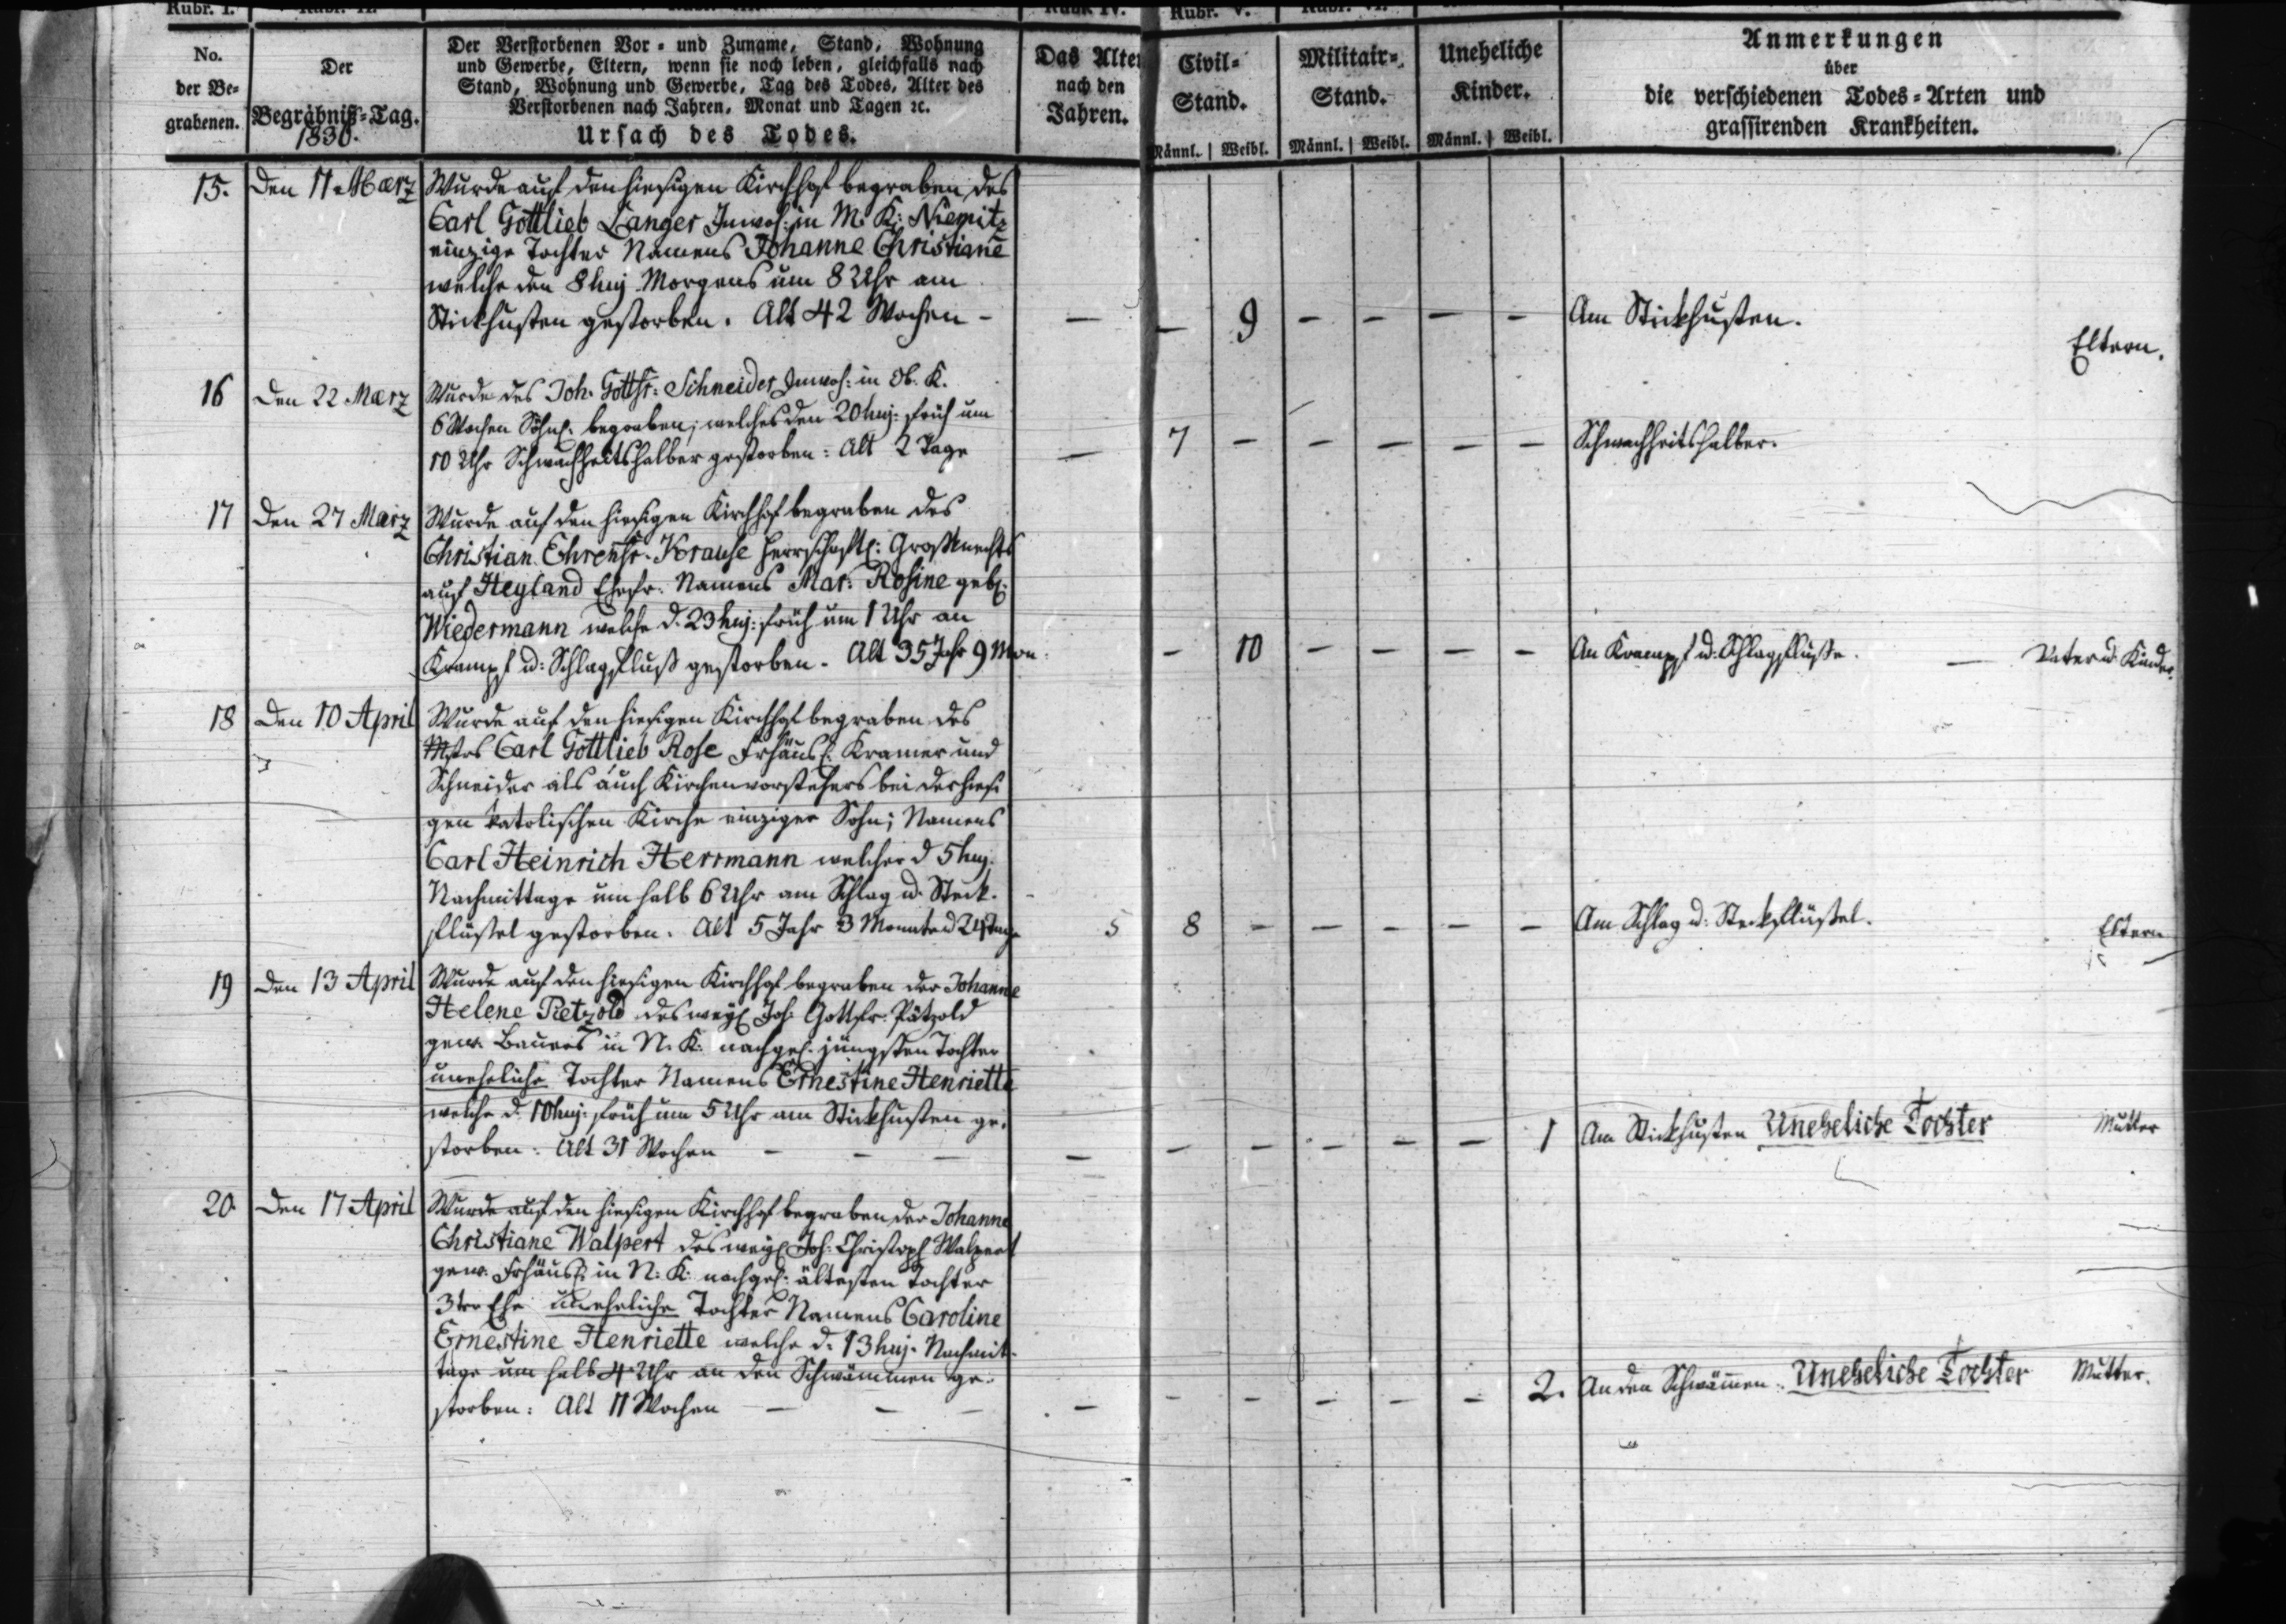 Rubr. I.
Rubr. V.
No.
der Be-
grabenen.
Der
Begräbniß-Tag.
1830.
Der Verstorbenen Vor- und Zuname, Stand, Wohnung
und Gewerbe, Eltern, wenn sie noch leben, gleichfalls nach
Stand, Wohnung und Gewerbe, Tag des Todes, Alter des
Verstorbenen nach Jahren, Monat und Tagen ꝛc.
Ursach des Todes.
Das Alter
nach den
Jahren.
Civil-
Stand.
Männl. Weibl.
Militair-
Stand.
Männl. Weibl.
Uneheliche
Kinder.
Männl. Weibl.
Anmerkungen
über
die verschiedenen Todes-Arten und
grassirenden Krankheiten.
15. den 11 Maerz
Wurde auf den hiesigen Kirchhof begraben des
Carl Gottlieb Langer Inwoh: in M. K: Niemitz
einzige Tochter Namens Johanne Christiane
welche den 8 huj. Morgens um 8 Uhr am
Stickhusten gestorben. Alt 42 Wochen -
— — 9 — — — — Am Stickhusten. Eltern.
16 den 22 Maerz
Wurde des Joh. Gottfr: Schneider Inwoh: in Ob. K.
6 Wochen Söhnl. begraben; welches den 20 huj: früh um
10 Uhr Schwachheitshalber gestorben: Alt 2 Tage
— 7 — — — — — Schwachheitshalber.
17 den 27 Maerz
Wurde auf den hiesigen Kirchhof begraben des
Christian Ehrenfr. Krause herrschaftl: Großknechts
auf Heyland Ehefr. Namens Mar: Rosine geb:
Wiedermann welche d. 23 huj: früh um 1 Uhr an
Krampf u: Schlagfluß gestorben. Alt 35 Jahr 9 Mon.
— 10 — — — — An Krampf u: Schlagflusse. — Vater u. Kinder.
18 den 10 April
Wurde auf den hiesigen Kirchhof begraben des
Mstrs Carl Gottlieb Rose Frhäusl. Kramer und
Schneider als auch Kirchenvorstehers bei der hiesi
gen katolischen Kirche einziger Sohn; Namens
Carl Heinrich Herrmann welcher d 5 huj.
Nachmittags um halb 6 Uhr am Schlag u. Steck-
flüssel gestorben. Alt 5 Jahr 3 Monate 24 Tage
5 8 — — — — — Am Schlag u: Steckflüssel. Eltern
19 den 13 April
Wurde auf den hiesigen Kirchhof begraben der Johanne
Helene Pætzold des weyl Joh: Gottfr. Pätzold
gew. Bauers in N. K: nachgel. jüngsten Tochter
uneheliche Tochter Namens Ernestine Henriette
welche d. 10 huj: früh um 5 Uhr am Stickhusten ge-
storben: Alt 31 Wochen — — —
— — — — — — 1 Am Stickhusten Uneheliche Tochter Mutter
20. den 17 April
Wurde auf den hiesigen Kirchhof begraben der Johanne
Christiane Walpert des weyl Joh: Christoph Walpert
gew. Frhäusl: in N: K: nachgel: ältesten Tochter
3ter Ehe uneheliche Tochter Namens Caroline
Ernestine Henriette welche d. 13 huj. Nachmit-
tags um halb 4 Uhr an den Schwämmen ge-
storben: Alt 11 Wochen — — —
— — — — — — 2. An den Schwäm̄en. Uneheliche Tochter Mutter.